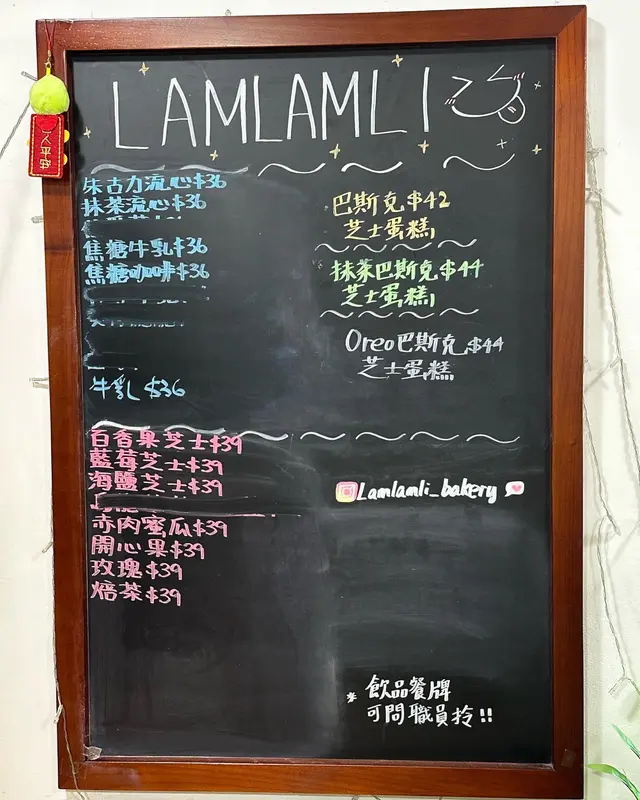 LAMLAMLI
朱古力流心$36
抹茶流心$36
焦糖牛乳$36
焦糖咖啡$36
牛乳 $36
百香果芝士$39
藍莓芝士$39
海鹽芝士$39
赤肉蜜瓜$39
開心果$39
玫瑰$39
焙茶$39
巴斯克$42
芝士蛋糕
抹茶巴斯克$44
芝士蛋糕
Oreo巴斯克$44
芝士蛋糕
Lamlamli_bakery
* 飲品餐牌
可問職員拎!!